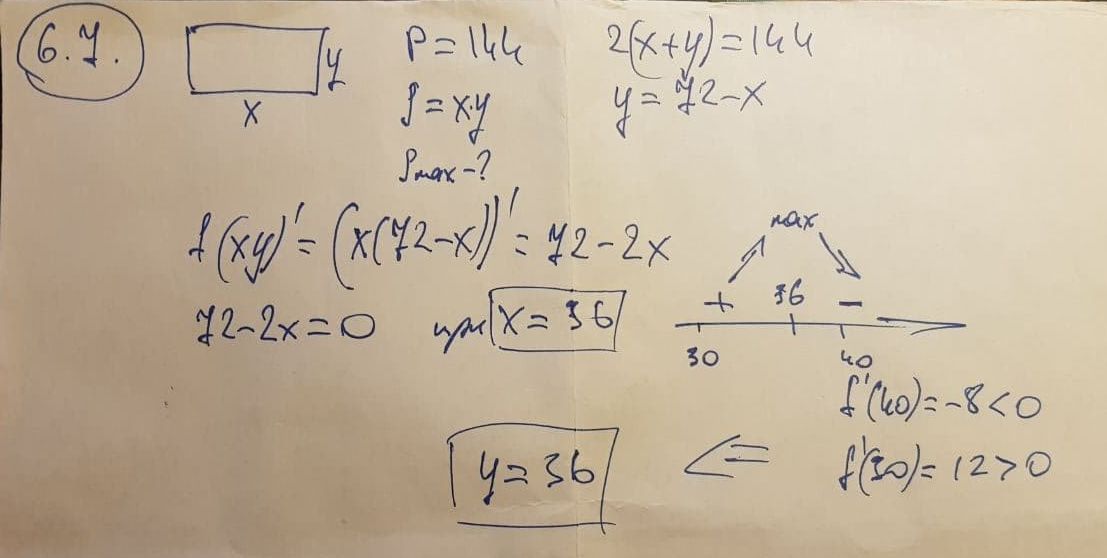 6.7.
y
x
P = 144
S = x·y
Smax - ?
2(x+y) = 144
y = 72-x
f(xy)' = (x(72-x))' = 72-2x
72-2x=0 при x = 36
max
+ 36 -
30 40
f'(40) = -8 < 0
f'(30) = 12 > 0
<=
y = 36